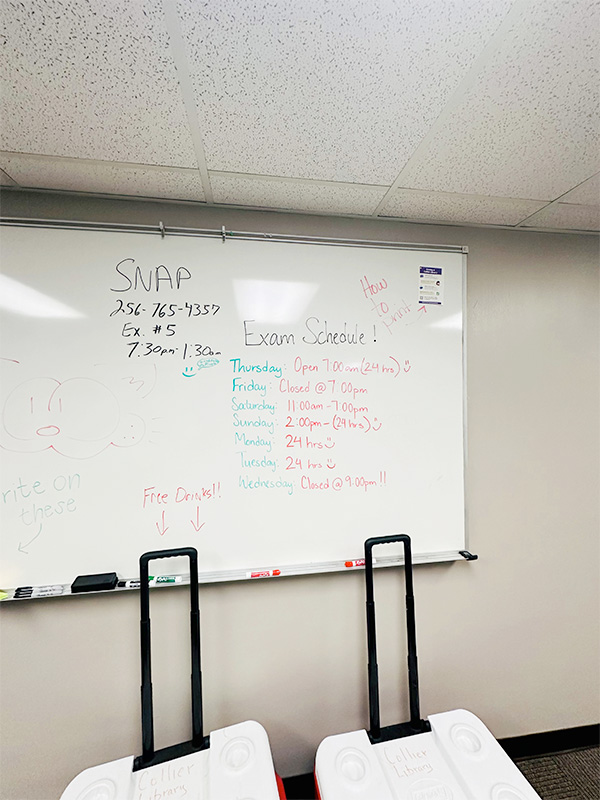 SNAP
256-765-4357
Ex. #5
7:30pm-1:30am
How
to
print
Exam Schedule!
Thursday: Open 7:00am (24 hrs)
Friday: Closed @ 7:00pm
Saturday: 11:00am-7:00pm
Sunday: 2:00pm-(24hrs)
Monday: 24 hrs
Tuesday: 24 hrs
Wednesday: Closed @ 9:00pm!!
rite on
these
Free Drinks!!
Collier
Library
Collier
Library